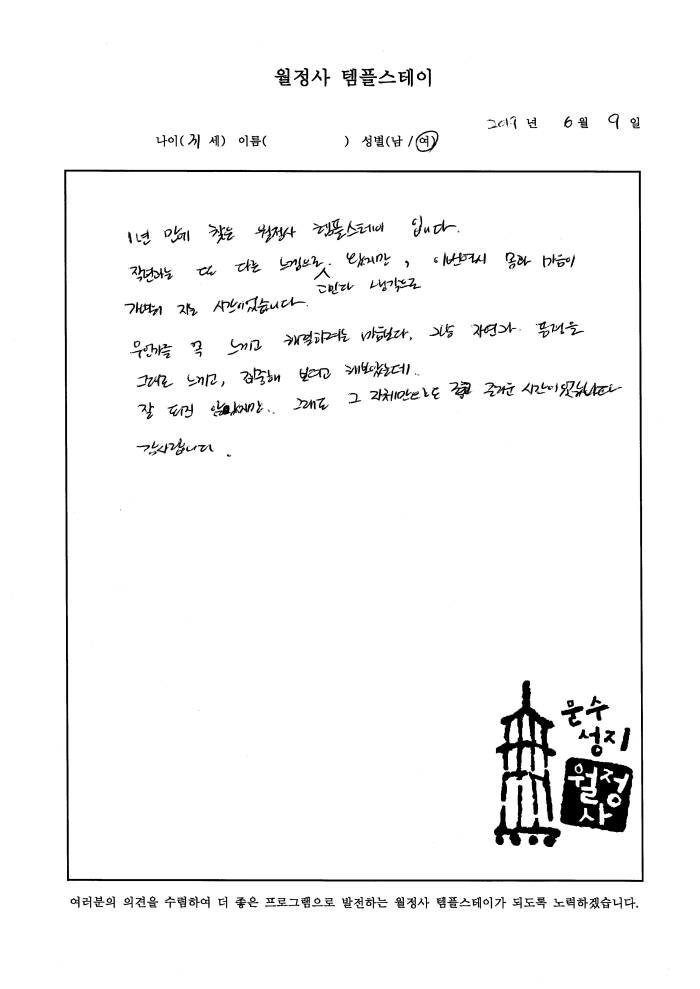 월정사 템플스테이
2019 년 6 월 9 일
나이( 세) 이름( ) 성별(남 / 여)
1년 만에 찾은 월정사 템플스테이 입니다.
작년과는 또 다른 느낌으로. 왔지만, 이번역시 몸과 마음이
고민과 생각으로
가벼워 지는 시간이었습니다.
무언가를 꼭 느끼고 해결하려는 마음보다, 그냥 자연과 풍경을
그대로 느끼고, 집중해 보려고 해보았는데..
잘 되진 않았지만.. 그래도 그 자체만으로도 즐거운 시간이었습니다
감사합니다.
문수
성지
월정
사
여러분의 의견을 수렴하여 더 좋은 프로그램으로 발전하는 월정사 템플스테이가 되도록 노력하겠습니다.